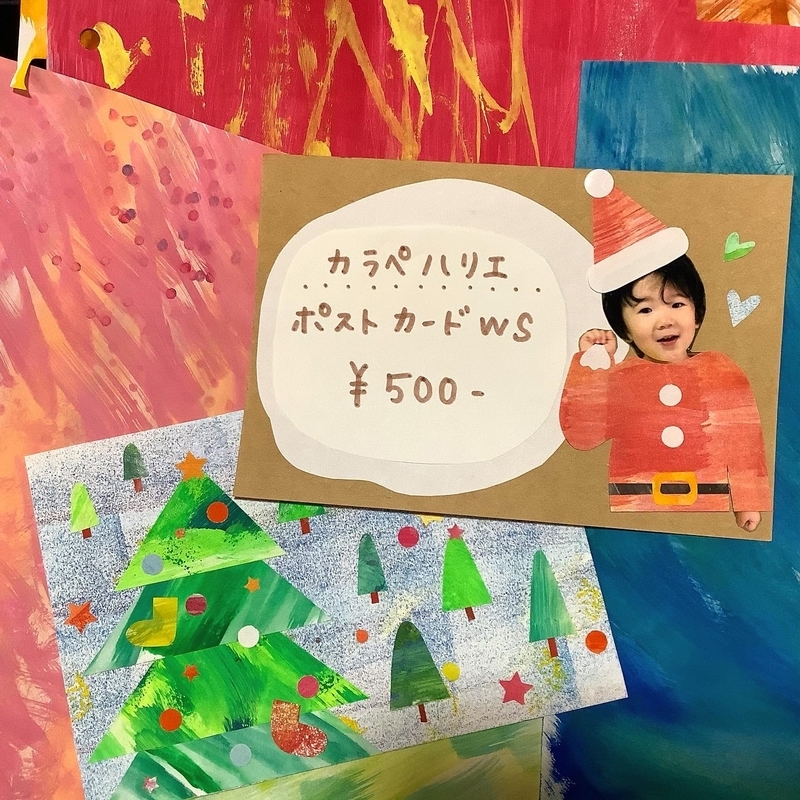 カラペハリエ
ポストカードWS
¥500-